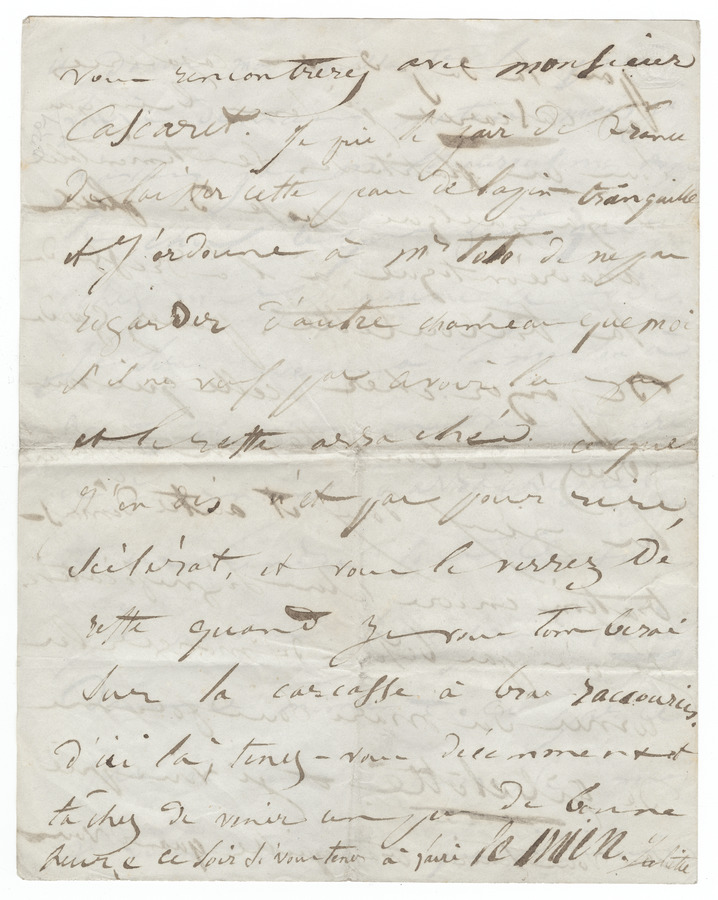 vous rencontrerez avec monsieur
Cascaret. Je prie le pair de France
de laisser cette peau de lapin tranquille
et j'ordonne à Mr Toto de ne pas
regarder d'autre chameau que moi
s'il ne veut pas avoir les yeux
et le reste arrachés. ce que
j'en dis n'est pas pour rire,
scélérat, et vous le verrez de
reste quand je vous tomberai
sur la carcasse à bras raccourcis.
d'ici là, tenez-vous décemment et
tâchez de venir un peu de bonne
heure ce soir si vous tenez à faire le mien. Juliette